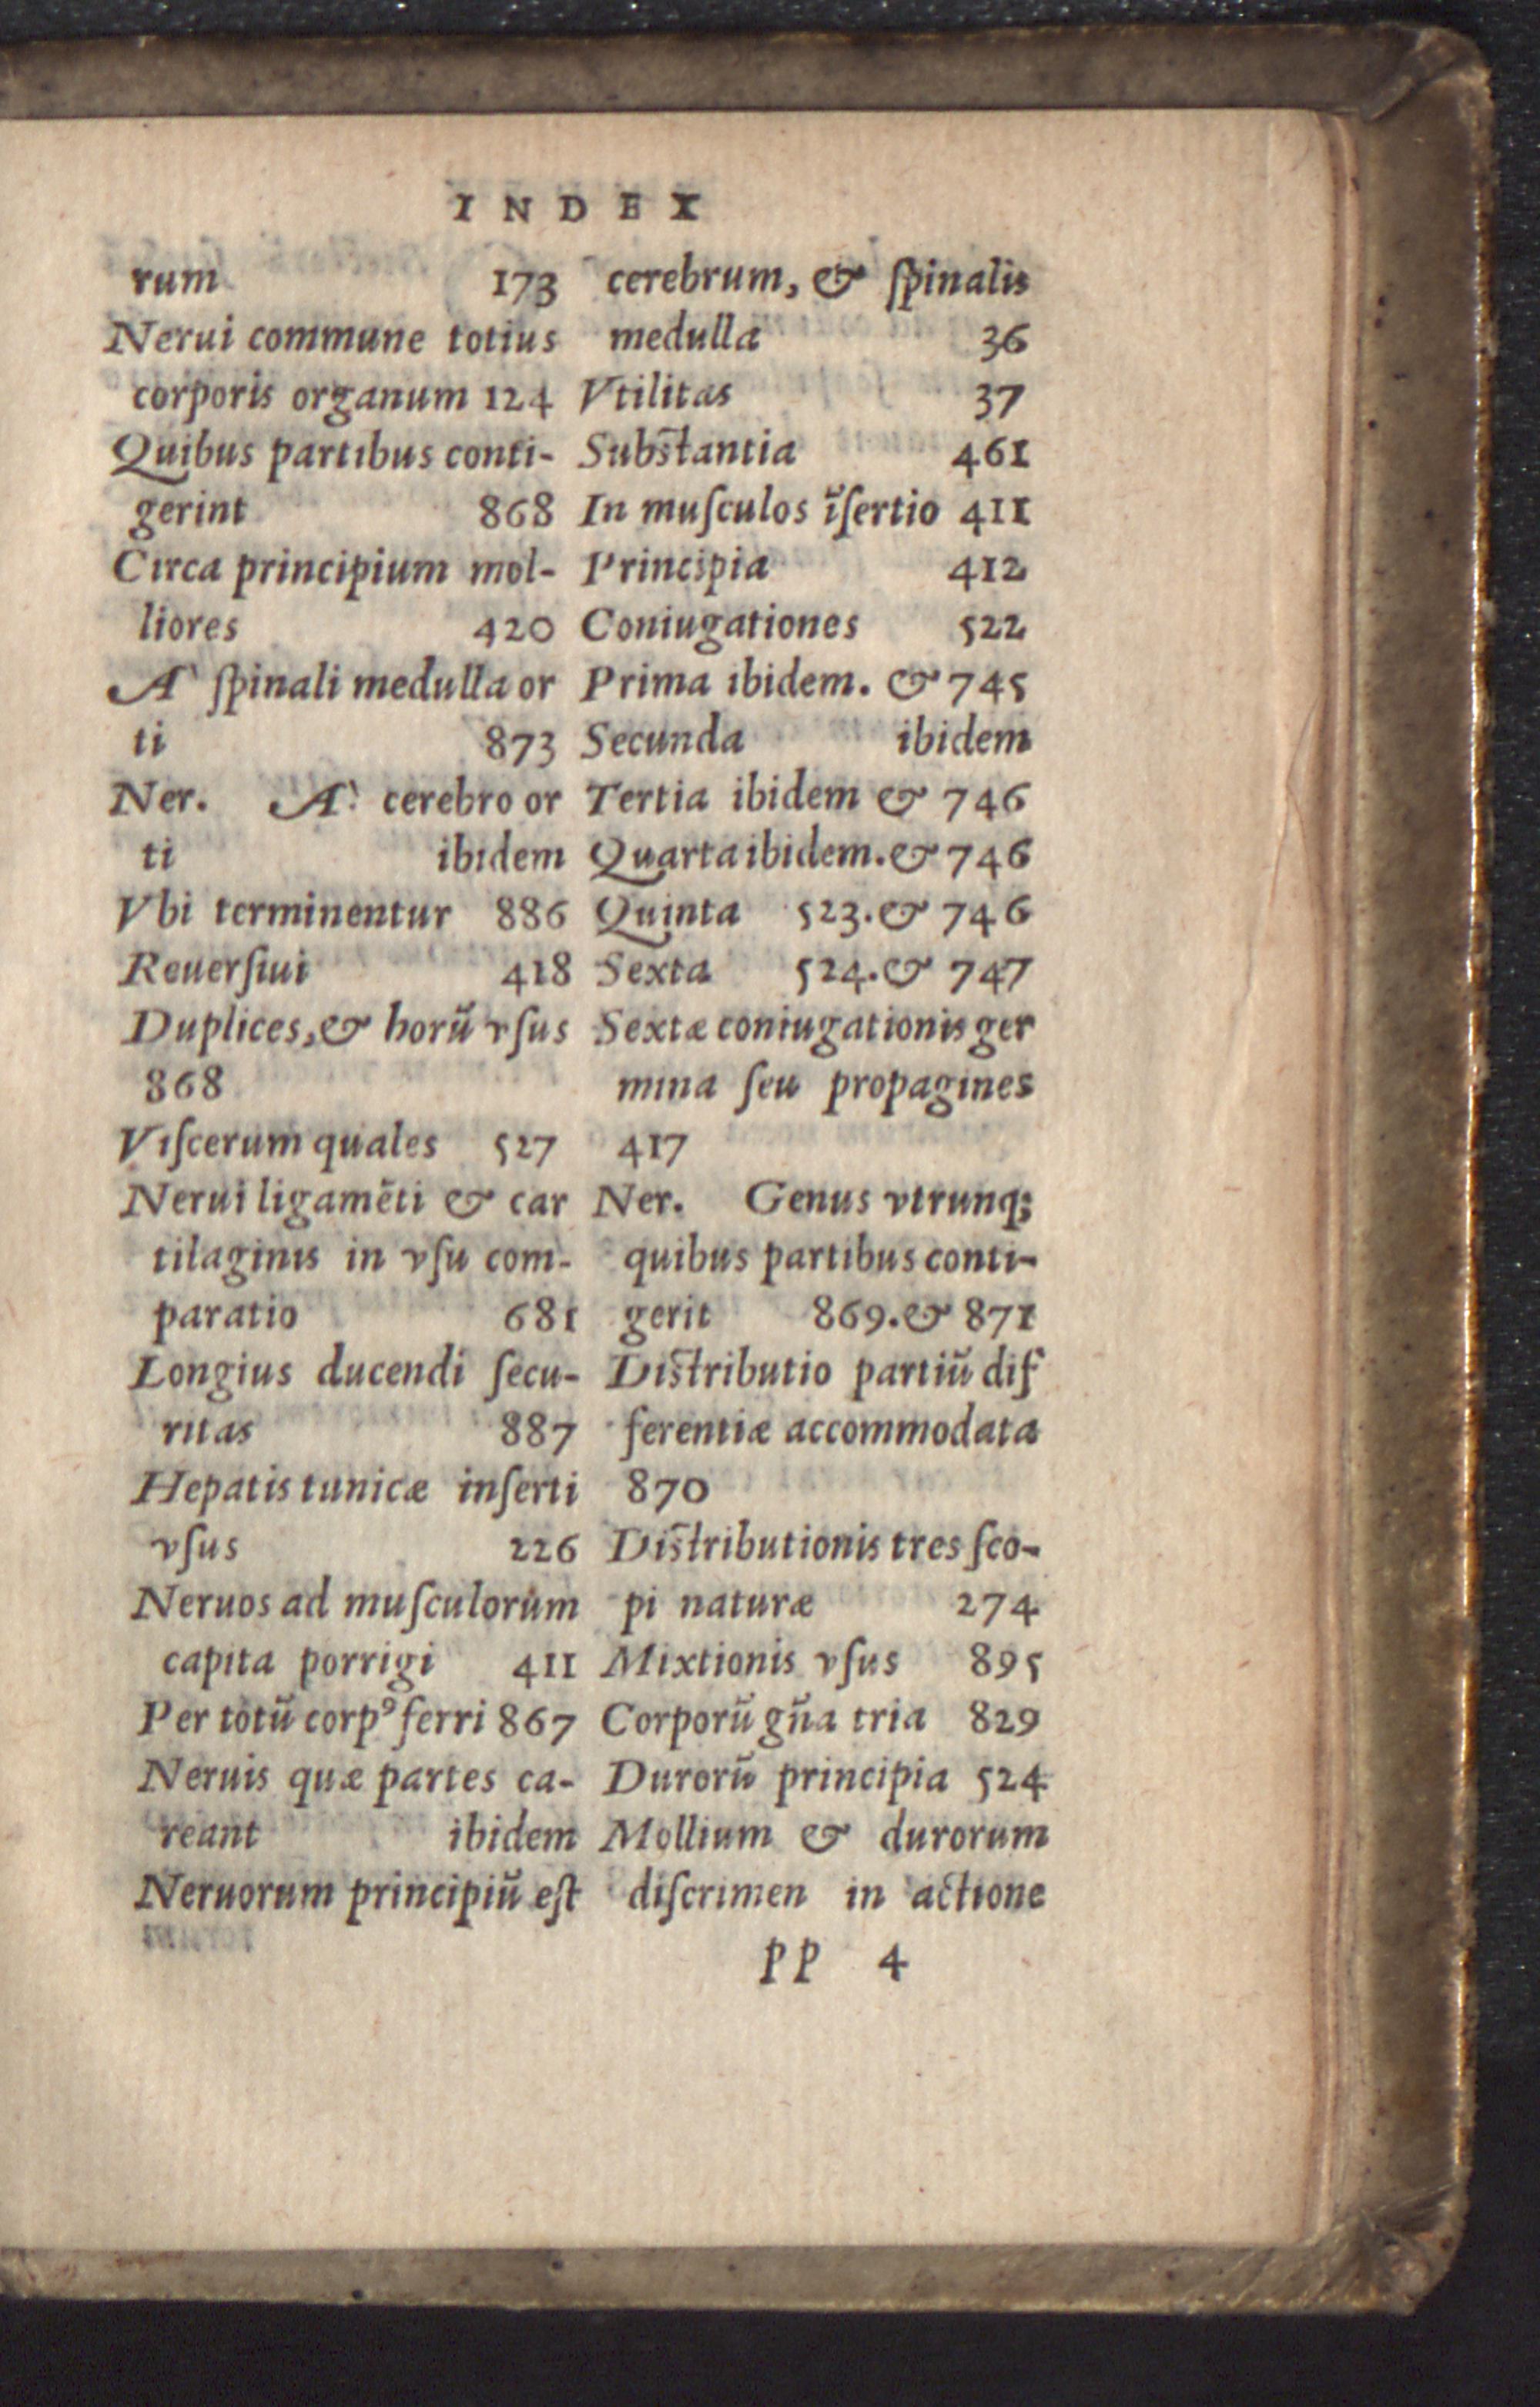 INDEX
rum 173
Nerui commune totius
corporis organum 124
Quibus partibus conti-
gerint 868
Circa principium mol-
liores 420
A' ſpinali medulla or
ti 873
Ner. A' cerebro or
ti ibidem
Vbi terminentur 886
Reuerſiui 418
Duplices, & horũ vſus
868
Viſcerum quales 527
Nerui ligamẽti & car
tilaginis in vſu com-
paratio 681
Longius ducendi ſecu-
ritas 887
Hepatis tunicæ inſerti
vſus 226
Neruos ad muſculorum
capita porrigi 411
Per totũ corpꝰ ferri 867
Neruis quæ partes ca-
reant ibidem
Neruorum principiũ eſt
cerebrum, & ſpinalis
medulla 36
Vtilitas 37
Subſtantia 461
In muſculos ĩſertio 411
Principia 412
Coniugationes 522
Prima ibidem. & 745
Secunda ibidem
Tertia ibidem & 746
Quarta ibidem. & 746
Quinta 523. & 746
Sexta 524. & 747
Sextæ coniugationis ger
mina ſeu propagines
417
Ner. Genus vtrunq;
quibus partibus conti-
gerit 869. & 871
Diſtributio partiũ diſ
ferentiæ accommodata
870
Diſtributionis tres ſco-
pi naturæ 274
Mixtionis vſus 895
Corporũ gña tria 829
Durorũ principia 524
Mollium & durorum
diſcrimen in actione
PP 4